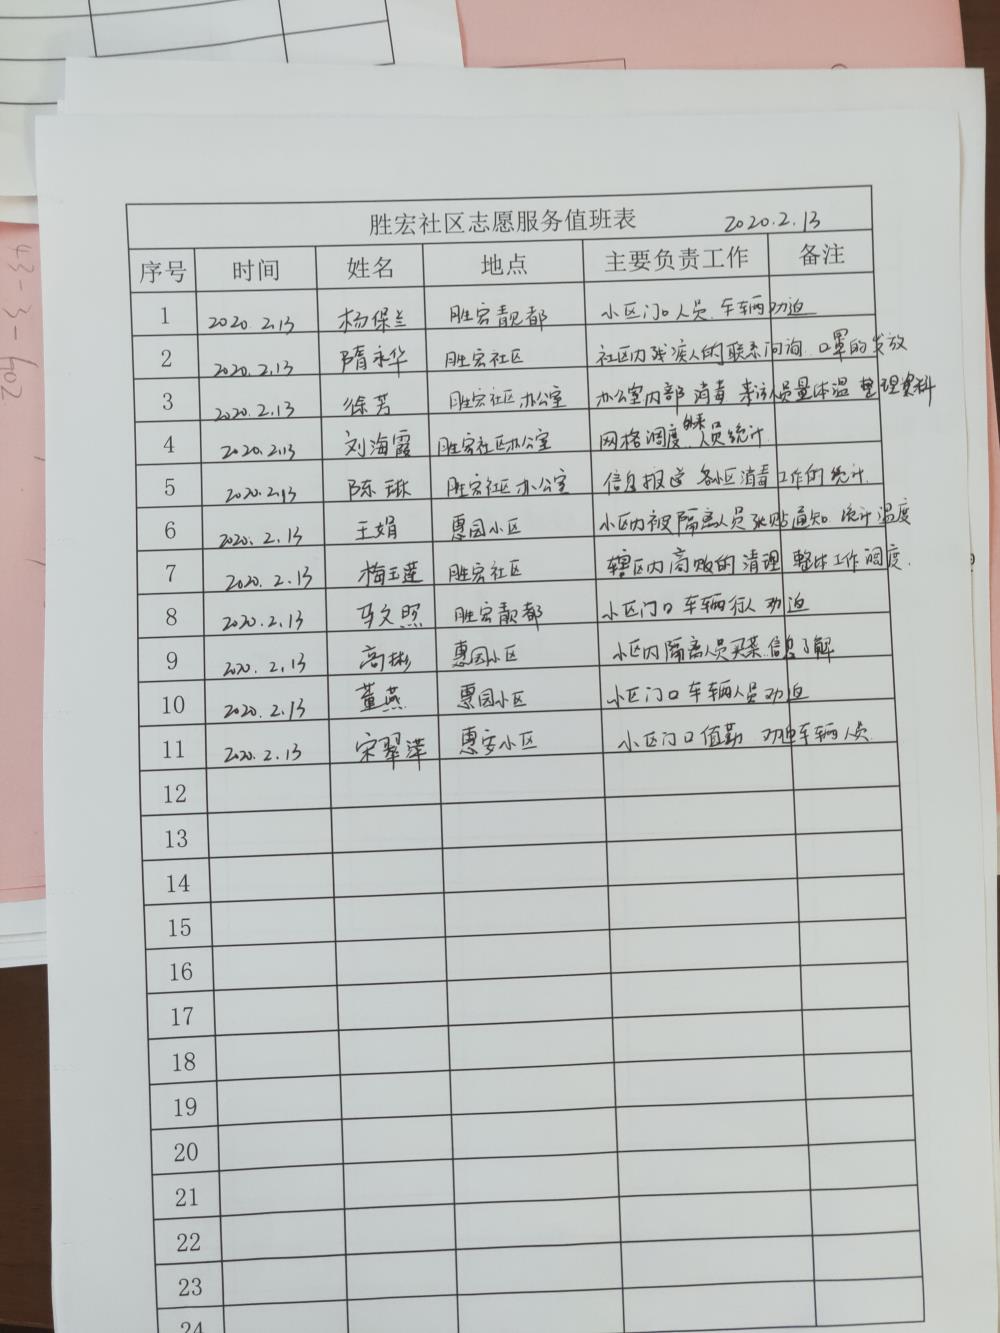 胜宏社区志愿服务值班表 2020.2.13
序号 时间 姓名 地点 主要负责工作 备注
1 2020.2.13 杨保兰 胜宏靓都 小区门口人员.车辆劝迫
2 2020.2.13 隋永华 胜宏社区 社区内残疾人的联系问询 口罩的发放
3 2020.2.13 徐芳 胜宏社区办公室 办公室内部消毒 来访人员量体温 整理资料
4 2020.2.13 刘海霞 胜宏社区办公室 网格调度 外来人员统计
5 2020.2.13 陈琳 胜宏社区办公室 信息报送 各小区消毒工作的统计.
6 2020.2.13 王娟 惠园小区 小区内被隔离人员张贴通知 统计温度
7 2020.2.13 梅玉莲 胜宏社区 辖区内高败的清理 整体工作调度.
8 2020.2.13 马文照 胜宏靓都 小区门口车辆行人劝迫
9 2020.2.13 高彬 惠园小区 小区内隔离人员买菜.信息了解
10 2020.2.13 董燕 惠园小区 小区门口车辆人员劝迫
11 2020.2.13 宋翠萍 惠安小区 小区门口值勤 车辆人员
12
13
14
15
16
17
18
19
20
21
22
23
24
43-3-602